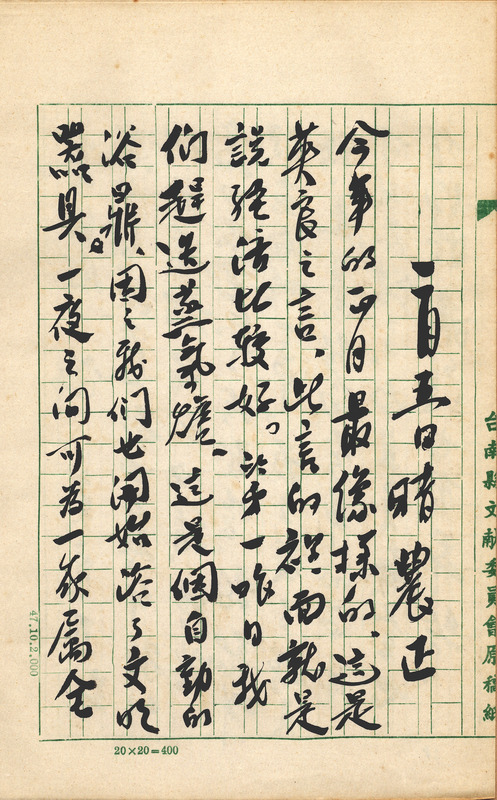 台南縣文献委員會原稿紙
二月五日晴 農正
今年的正月最像樣的、這是
英良之言、此言的裡面就是
說經濟比較好。一昨日我
們趕造蒸氣爐、這是個自動的
浴鼎、因之我們也開始浴了文明
器具。一夜之間可為一家屬全
47.10.2,000
20×20=400